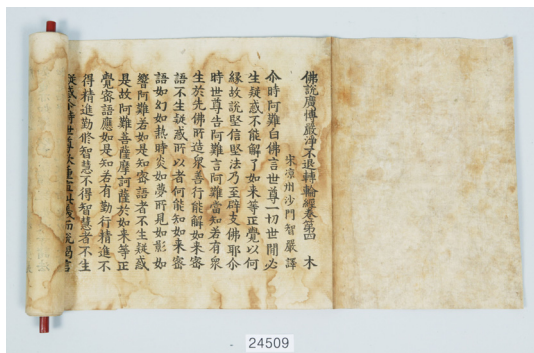 佛說廣博嚴淨不退轉輪經卷第四 木
宋涼州沙門智嚴譯
尒時阿難白佛言世尊一切世閒必
生疑惑不能解了如来等正覺以何
緣故說堅信堅法乃至辟支佛耶尒
時世尊告阿難言阿難當知若有衆
生於先佛所造衆善行能解如来密
語不生疑惑所以者何能知如来密
語如幻如熱時炎如夢所見如影如
響阿難若如是知密語者不生疑惑
是故阿難菩薩摩訶薩於如来等正
覺密語應如是知若有勤行精進不
得精進勤修智慧不得智慧者不生
疑惑尒時世尊欲重宣此義而說偈言
24509